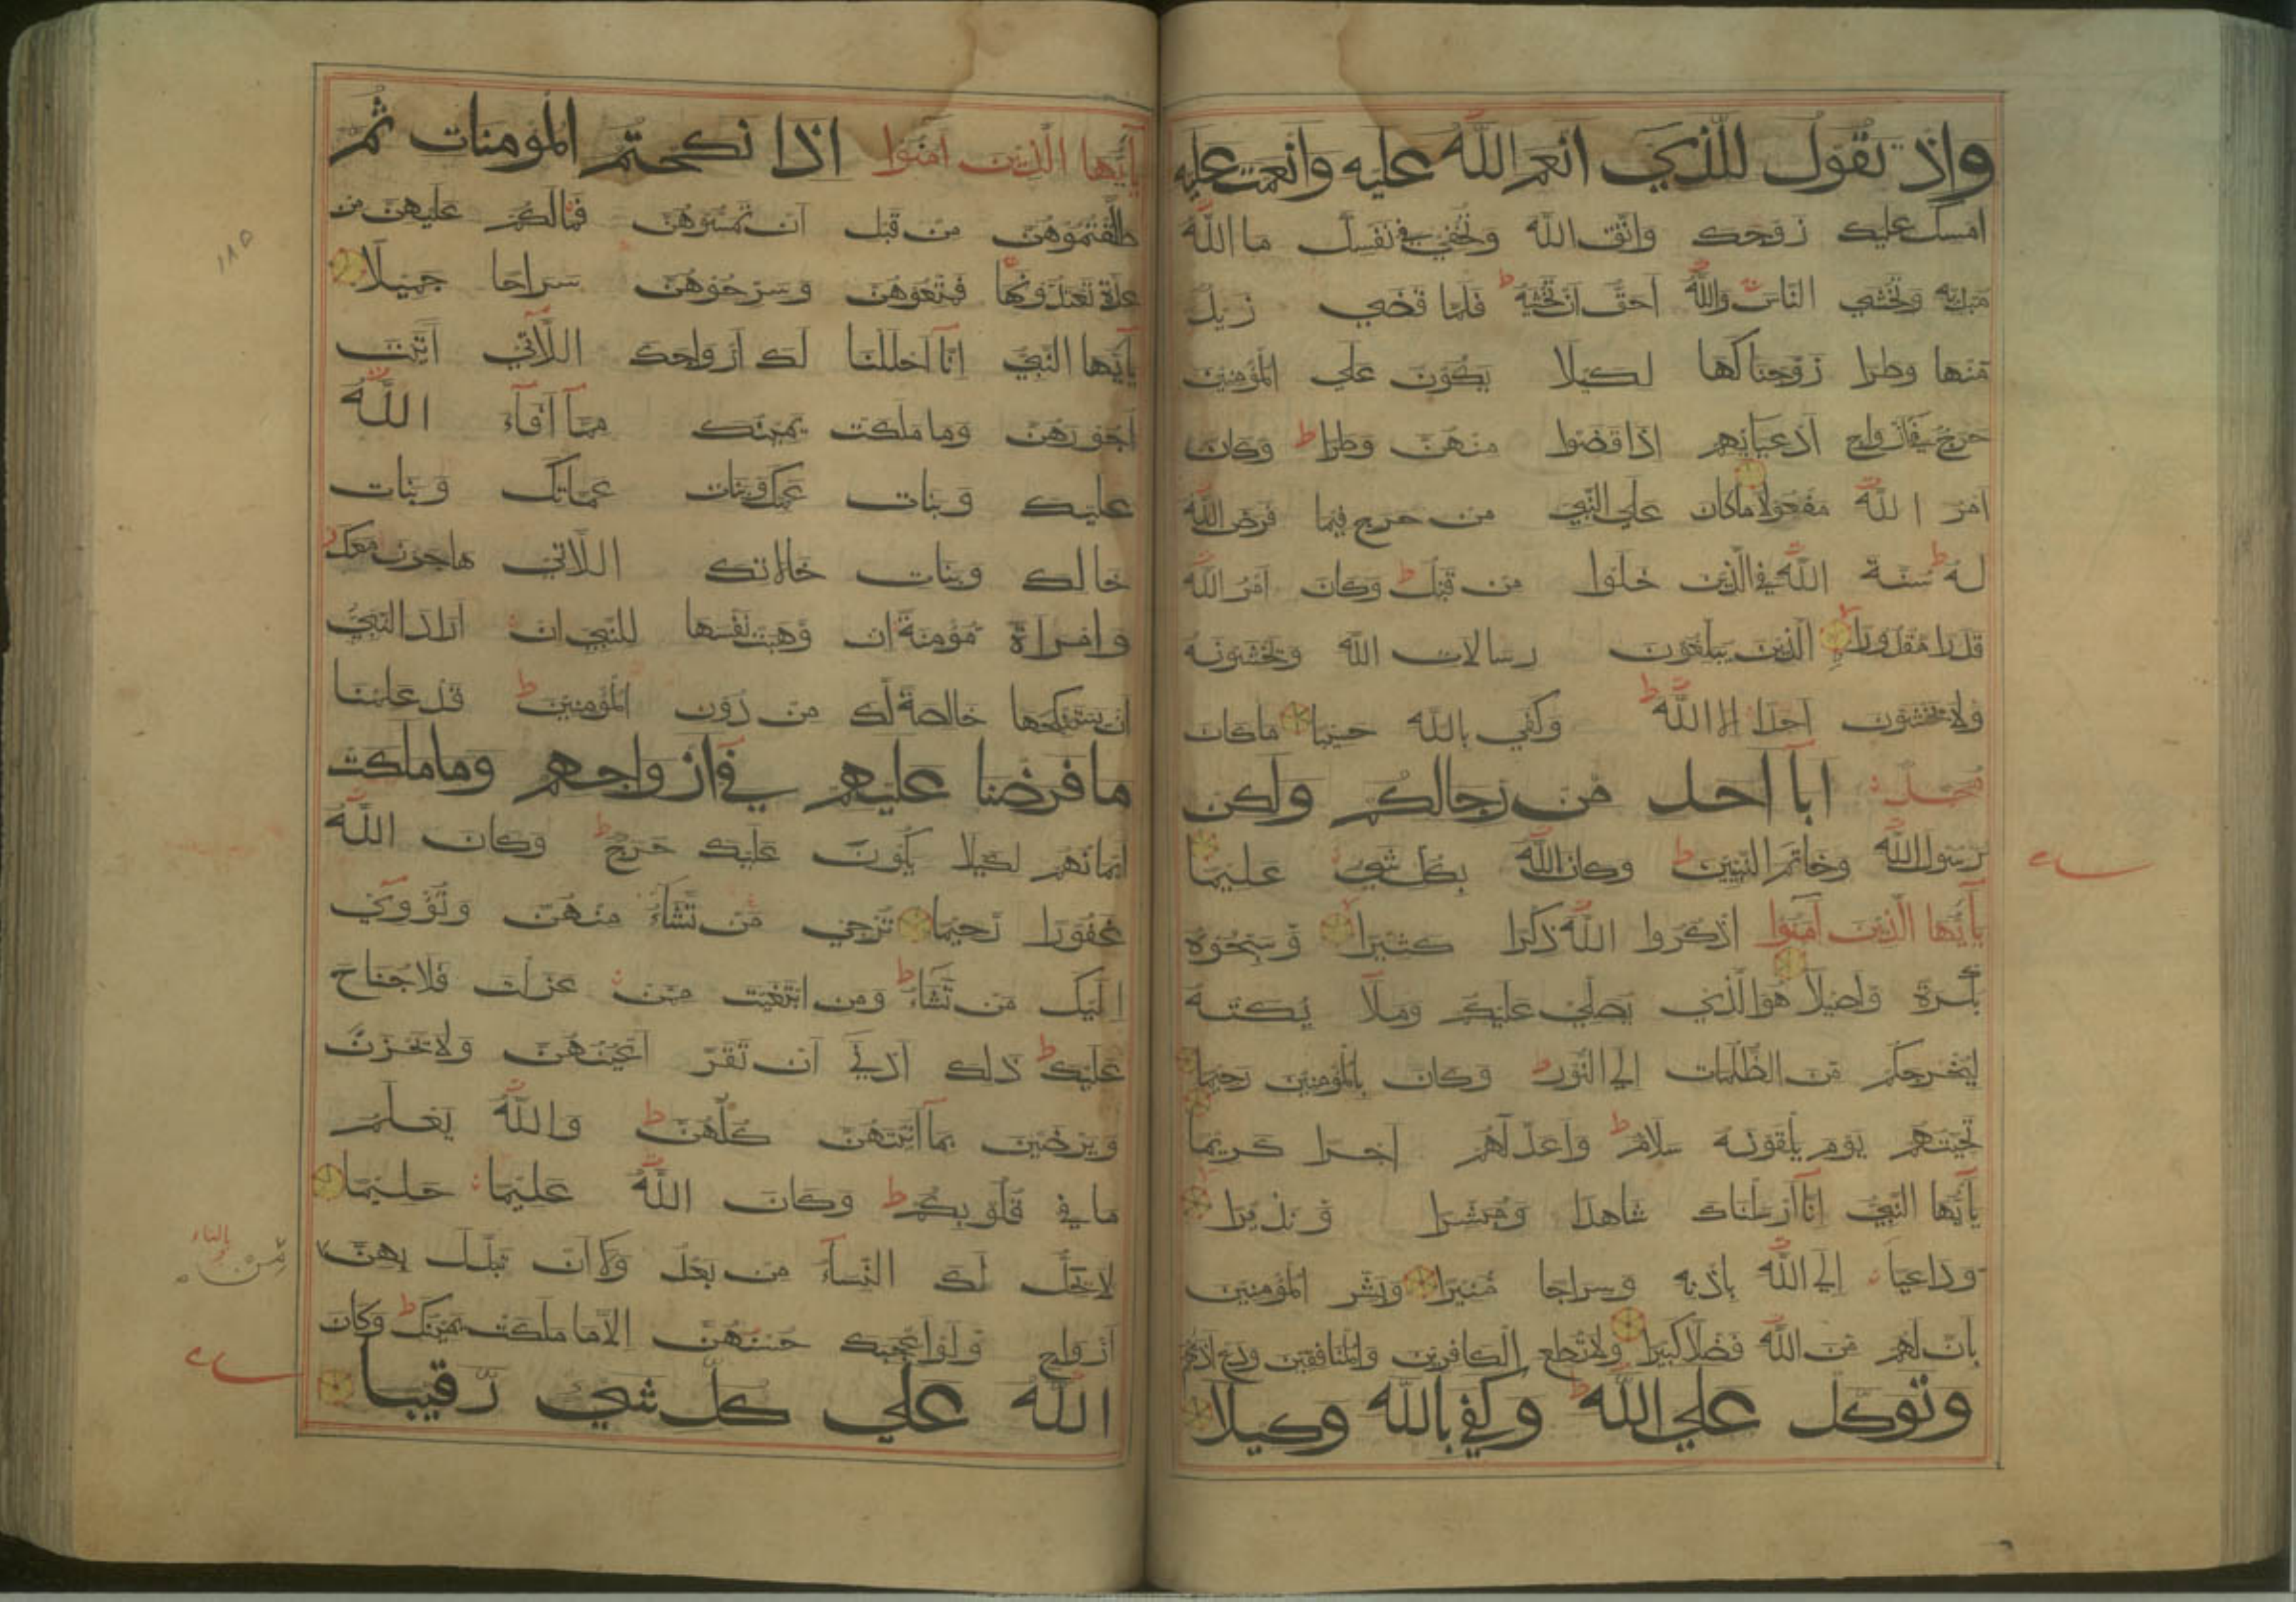 واذ تقول للذي انعم الله عليه وانعمت عليه
امسك عليك زوجك واتق الله وتخفي في نفسك ما الله
مبديه وتخشي الناس والله احق ان تخشيه ط فلما قضي زيد
منها وطرا زوجناكها لكيلا يكون علي المؤمنين
حرج في ازواج ادعيائهم اذا قضوا منهن وطرا ط وكان
امر الله مفعولا ماكان علي النبي من حرج فيما فرض الله
له ط سنة الله في الذين خلوا من قبل ط وكان امر الله
قدرا مقدورا الذين يبلغون رسالات الله ويخشونه
ولا يخشون احدا الا الله ط وكفي بالله حسيبا ماكان
محمد ابا احد من رجالكم ولكن
رسول الله وخاتم النبيين ط وكان الله بكل شي عليما
يآايها الذين آمنوا اذكروا الله ذكرا كثيرا وسبحوه
بكرة واصيلا هو الذي يصلي عليكم وملآئكته
ليخرجكم من الظلمات الي النور ط وكان بالمؤمنين رحيما
تحيتهم يوم يلقونه سلام ط واعد لهم اجرا كريما
يآايها النبي انا ارسلناك شاهدا ومبشرا ونذيرا
وداعيا الي الله باذنه وسراجا منيرا وبشر المؤمنين
بان لهم من الله فضلا كبيرا ولا تطع الكافرين والمنافقين ودع اذيهم
وتوكل علي الله ط وكفي بالله وكيلا
يآايها الذين آمنوا اذا نكحتم المؤمنات ثم
طلقتموهن من قبل ان تمسوهن فمالكم عليهن من
عدة تعتدونها فمتعوهن وسرحوهن سراحا جميلا
يآايها النبي انا احللنا لك ازواجك اللاتي آتيت
اجورهن وما ملكت يمينك مما افآء الله
عليك وبنات عمك وبنات عماتك وبنات
خالك وبنات خالاتك اللاتي هاجرن معك
وامراة مؤمنة ان وهبت نفسها للنبي ان اراد النبي
ان يستنكحها خالصة لك من دون المؤمنين ط قد علمنا
ما فرضنا عليهم في ازواجهم وما ملكت
ايمانهم لكيلا يكون عليك حرج ط وكان الله
غفورا رحيما ترجي من تشآء منهن وتؤوي
اليك من تشآء ط ومن ابتغيت ممن عزلت فلا جناح
عليك ط ذلك ادني ان تقر اعينهن ولا يحزن
ويرضين بمآ آتيتهن كلهن ط والله يعلم
ما في قلوبكم ط وكان الله عليما حليما
لا يحل لك النسآء من بعد ولا ان تبدل بهن
ازواج ولو اعجبك حسنهن الا ما ملكت يمينك ط وكان
الله علي كل شي رقيبا
١٨٥
بالتاء
من